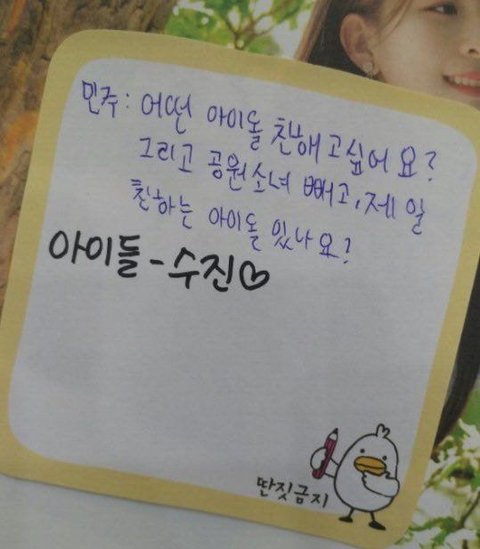 민주: 어떤 아이돌 친해고싶어 요?
그리고 공원소녀 빼고, 제일
친하는 아이돌 있나요?
아이들-수진♡
딴짓금지